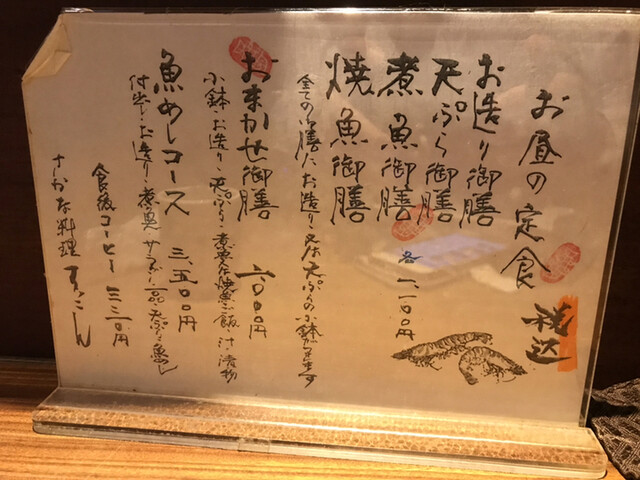 お昼の定食
税込
お造り御膳
天ぷら御膳
煮魚御膳
焼魚御膳
各
全ての御膳に、お造り、又は天ぷらの小鉢が
おまかせ御膳
小鉢・お造り・天ぷら・煮魚又は焼魚・ご飯・汁・漬物
魚めしコース 三、五〇〇円
付出し・お造り・煮魚・サラダ・一品・天ぷら・魚めし
食後コーヒー 三三〇円
さかな料理